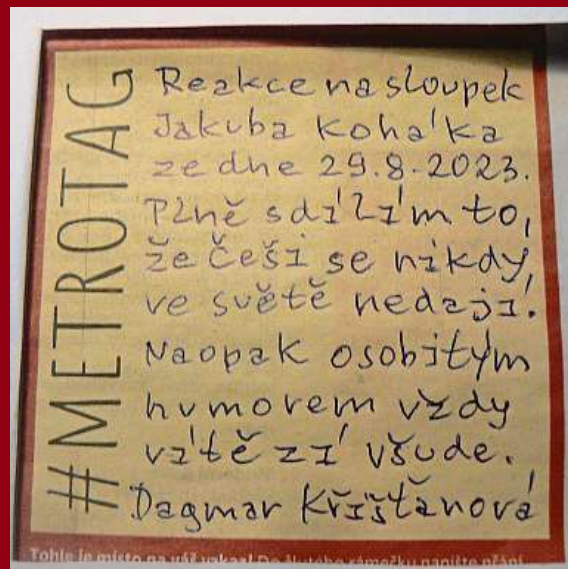 #METROTAG
Reakce na sloupek
Jakuba Koháka
ze dne 29.8.2023.
Plně sdílím to,
že Češi se nikdy,
ve světě nedají.
Naopak osobitým
humorem vždy
vítězí všude.
Dagmar Křišťanová
Tohle je místo na váš vzkaz! Do žlutého rámečku napište přání,